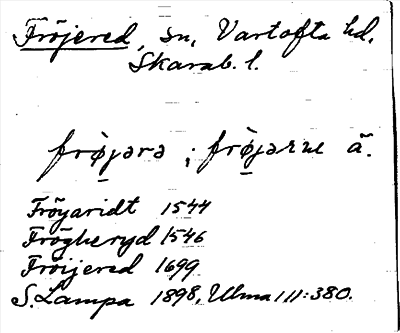 Fröjered, sn, Vartofta hd,
Skarab. l.
frø̀jara ; frø̀jarne ä.
Fröyaridt 1544
Frögheryd 1546
Fröijered 1699
S. Lampa 1898, Ulma 111:380.